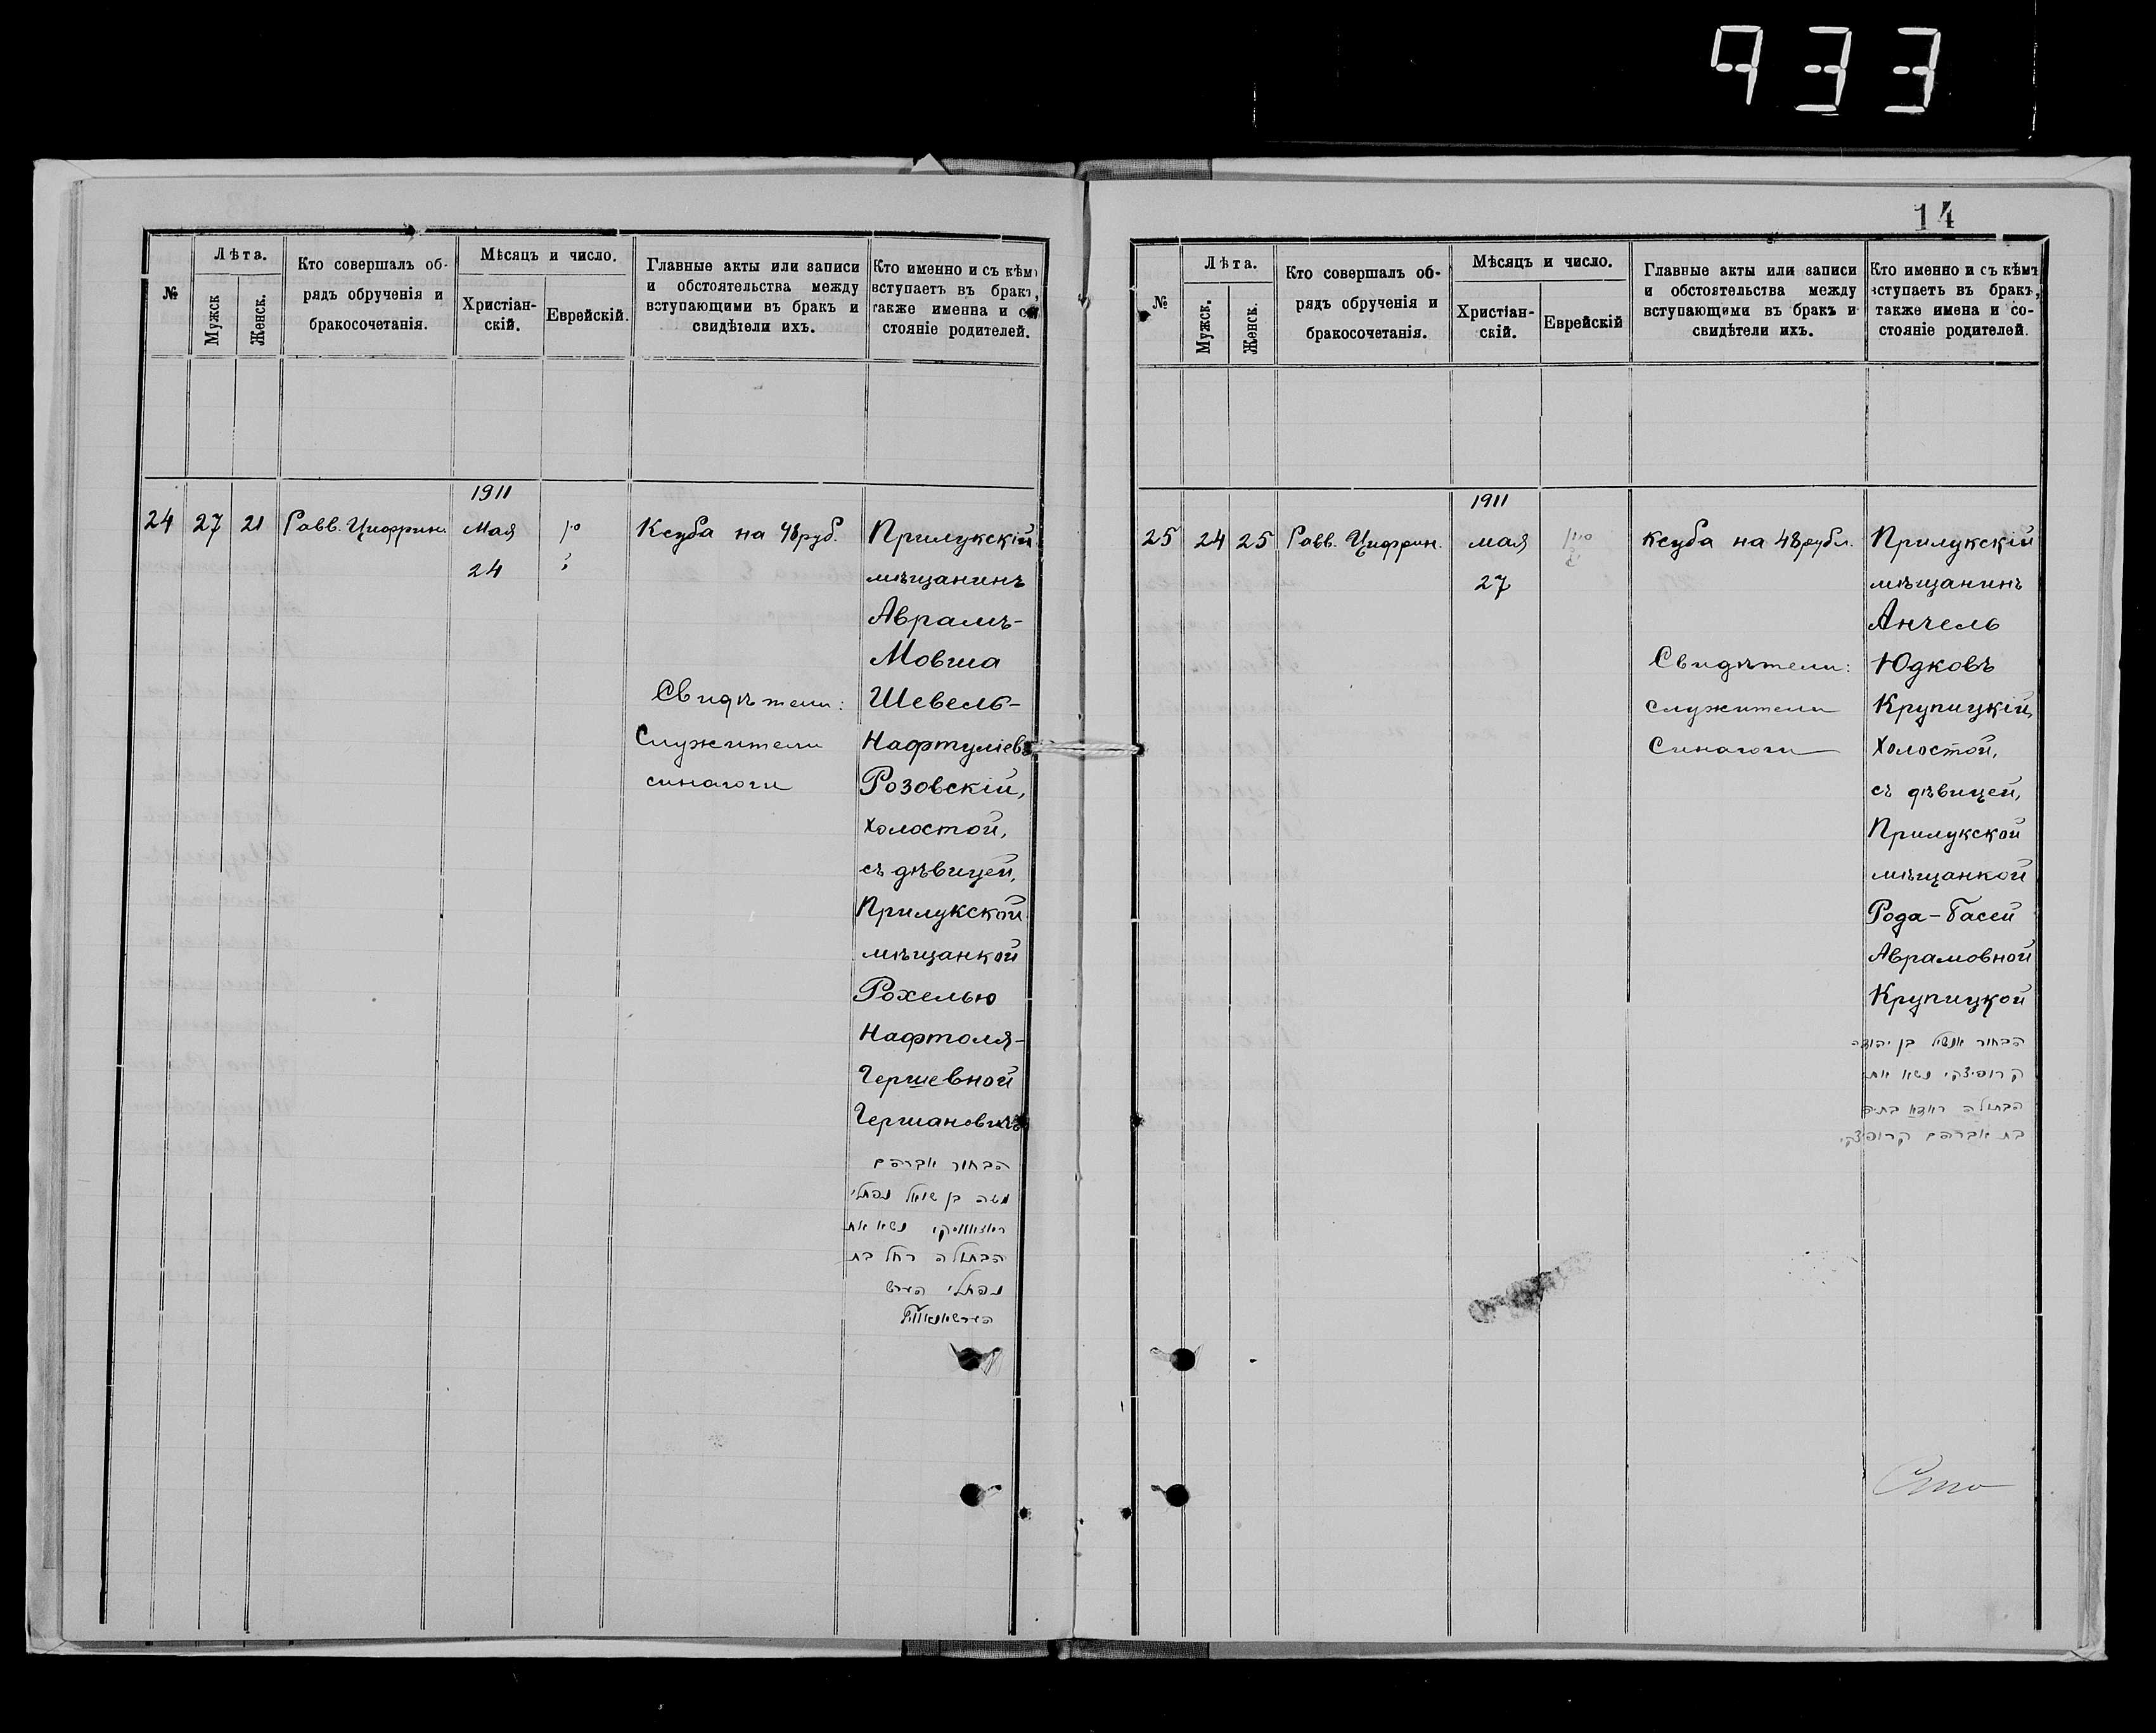 933
№
Лѣта.
Мужск
Женск.
Кто совершалъ об-
рядъ обрученія и
бракосочетанія.
Мѣсяцъ и число.
Христіан-
скій.
Еврейскій.
Главные акты или записи
и обстоятельства между
вступающими въ бракъ и
свидѣтели ихъ.
Кто именно и съ кѣмъ
вступаетъ въ бракъ,
также именна и со
стояніе родителей.
24
27
21
Равв. Цифрин.
1911
Мая
24
Ксуба на 48 руб.
Свидѣтели:
Служители
синагоги
Прилукскій
мѣщанинъ
Аврамъ-
Мовша
Шевель-
Нафтуліевъ
Розовскій,
холостой,
съ дѣвицей,
Прилукской
мѣщанкой
Рохелью
Нафтоля-
Гершевной
Гершановичъ
הבחור אברהם
משה בן שוואל נפתלי
ראזאווסקי נשא את
הבתולה רחל בת
נפתלי הירש
14
№
Лѣта.
Мужск.
Женск.
Кто совершалъ об-
рядъ обрученія и
бракосочетанія.
Мѣсяцъ и число.
Христіан-
скій.
Еврейскій
Главные акты или записи
и обстоятельства между
вступающими въ бракъ и
свидѣтели ихъ.
Кто именно и съ кѣмъ
вступаетъ въ бракъ,
также имена и со-
стояніе родителей.
25
24
25
Равв. Цифрин.
1911
мая
27
Ксуба на 48 рубл.
Свидѣтели:
служители
Синагоги
Прилукскій
мѣщанинъ
Анчель
Юдковъ
Крупицкій,
Холостой,
съ дѣвицей,
Прилукской
мѣщанкой
Рода-Басей
Аврамовной
Крупицкой
הבחור אנשיל בן יהודה
קרופיצקי נשא את
הבתולה ראדא בתיה
בת אברהם קרופיצקי